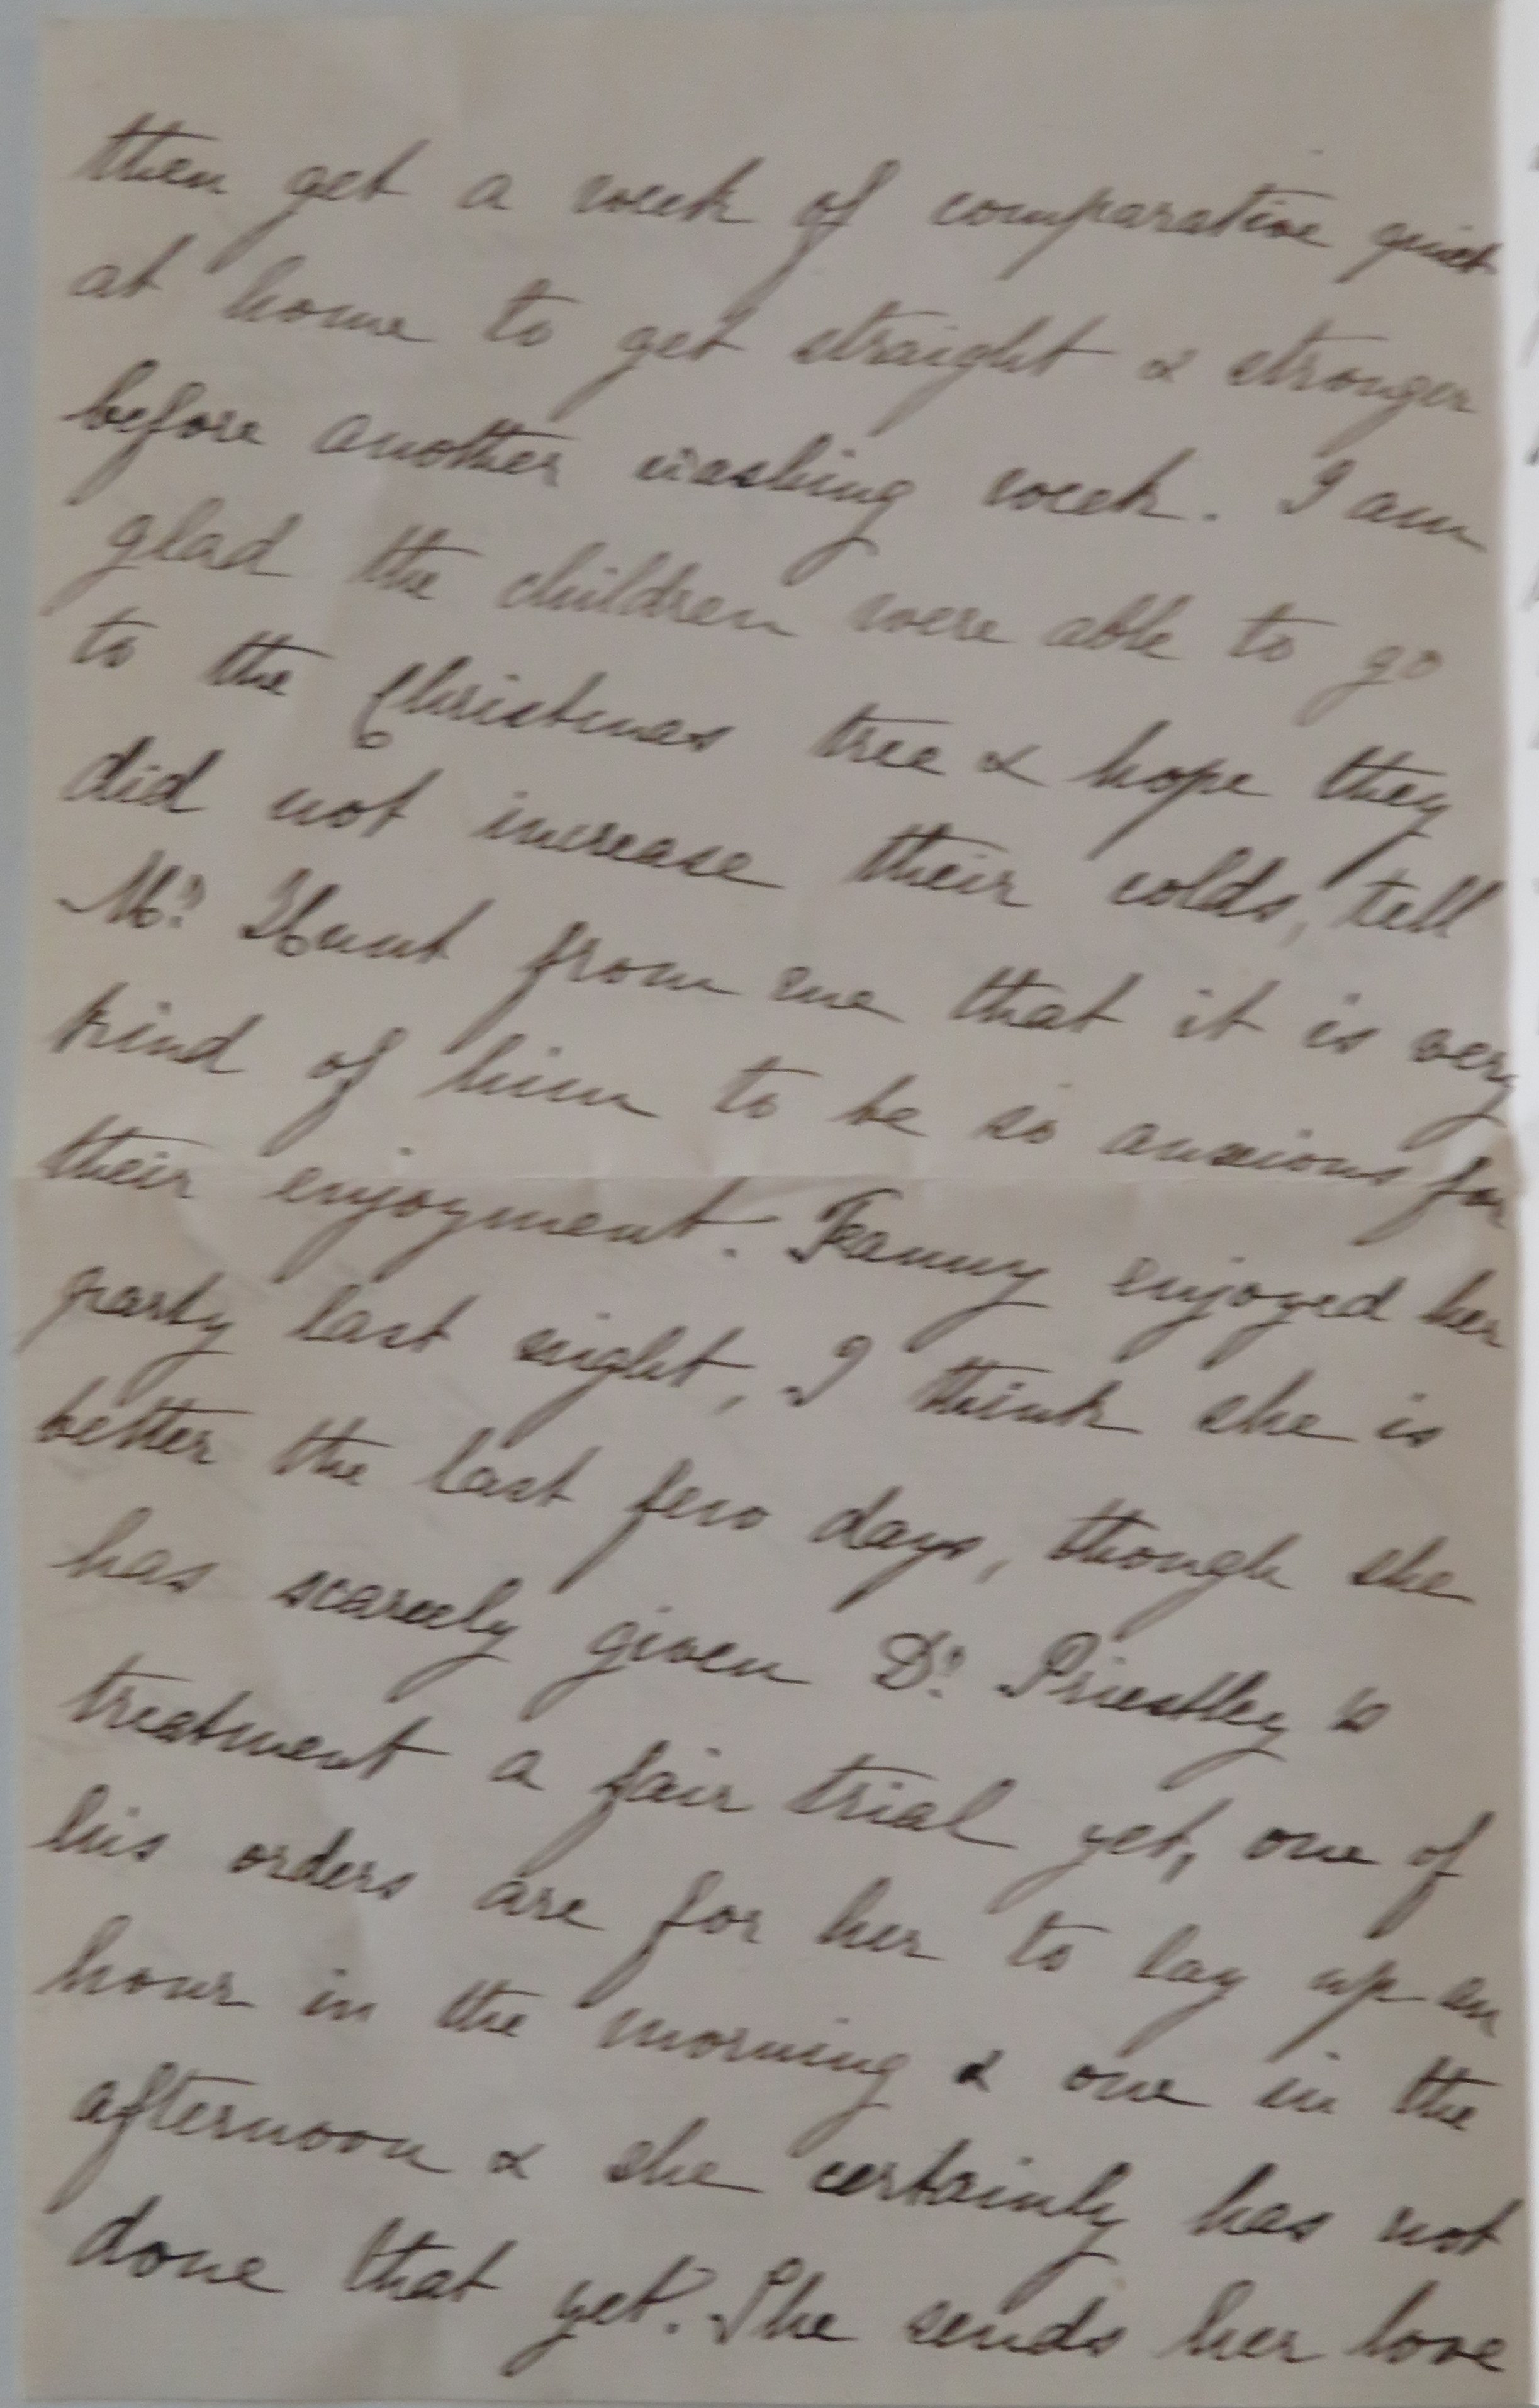 then get a week of comparative quiet
at home to get straight & stronger
before another washing week. I am
glad the children were able to go
to the Christmas tree & hope they
did not increase their colds, tell
Mr. Hunt from me that it is very
kind of him to be so anxious for
their enjoyment. Fanny enjoyed her
party last night, I think she is
better the last few days, though she
has scarcely given Dr. Priestley's
treatment a fair trial yet, one of
his orders are for her to lay up an
hour in the morning & one in the
afternoon & she certainly has not
done that yet. She sends her love